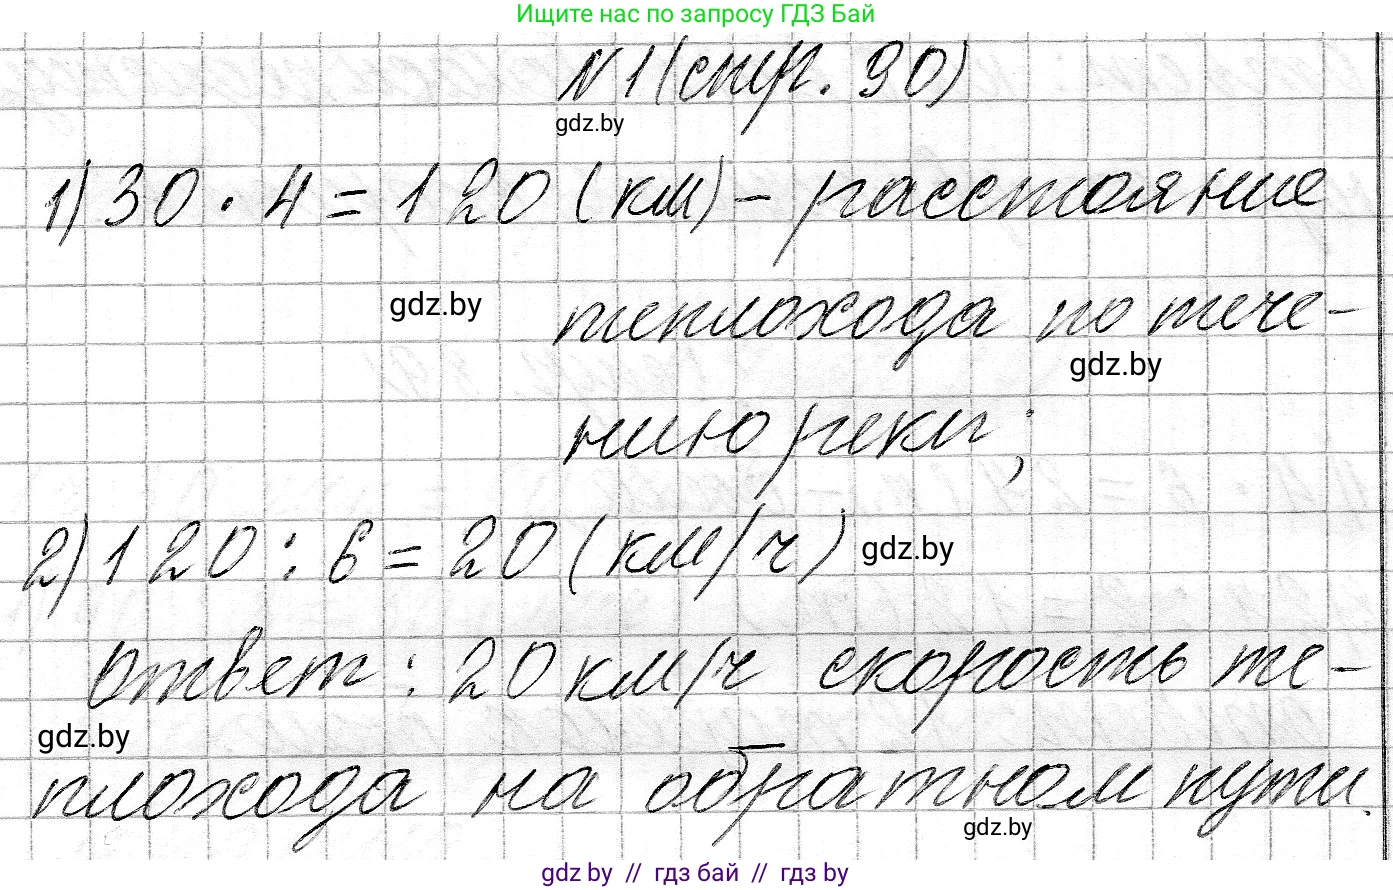 Ищите нас по запросу ГДЗ Бай
N 1 (стр. 90)
gdz.by
1) 30 · 4 = 120 (км) – расстояние
gdz.by
теплохода по тече-
gdz.by
нию реки;
2) 120 : 6 = 20 (км/ч)
gdz.by
Ответ: 20 км/ч скорость те-
gdz.by
плохода на обратном пути.
gdz.by
gdz by // гдз бай // гдз by